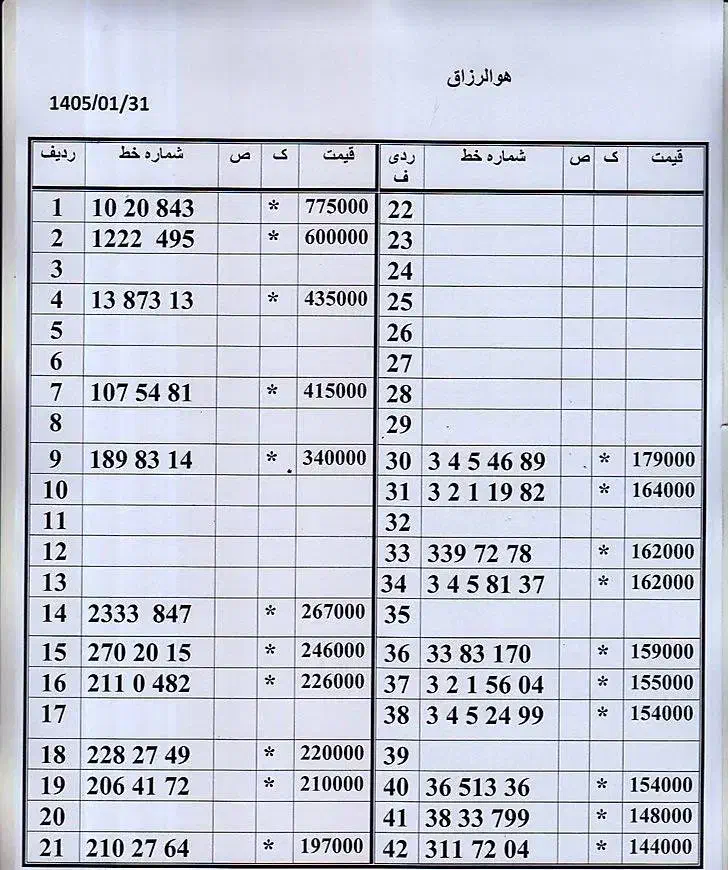 هوالرزاق
1405/01/31
ردیف شماره خط ص ک قیمت ردیف شماره خط ص ک قیمت
1 10 20 843 * 775000 22
2 1222 495 * 600000 23
3 24
4 13 873 13 * 435000 25
5 26
6 27
7 107 54 81 * 415000 28
8 29
9 189 83 14 * 340000 30 3 4 5 46 89 * 179000
10 31 3 2 1 19 82 * 164000
11 32
12 33 339 72 78 * 162000
13 34 3 4 5 81 37 * 162000
14 2333 847 * 267000 35
15 270 20 15 * 246000 36 33 83 170 * 159000
16 211 0 482 * 226000 37 3 2 1 56 04 * 155000
17 38 3 4 5 24 99 * 154000
18 228 27 49 * 220000 39
19 206 41 72 * 210000 40 36 513 36 * 154000
20 41 38 33 799 * 148000
21 210 27 64 * 197000 42 311 72 04 * 144000